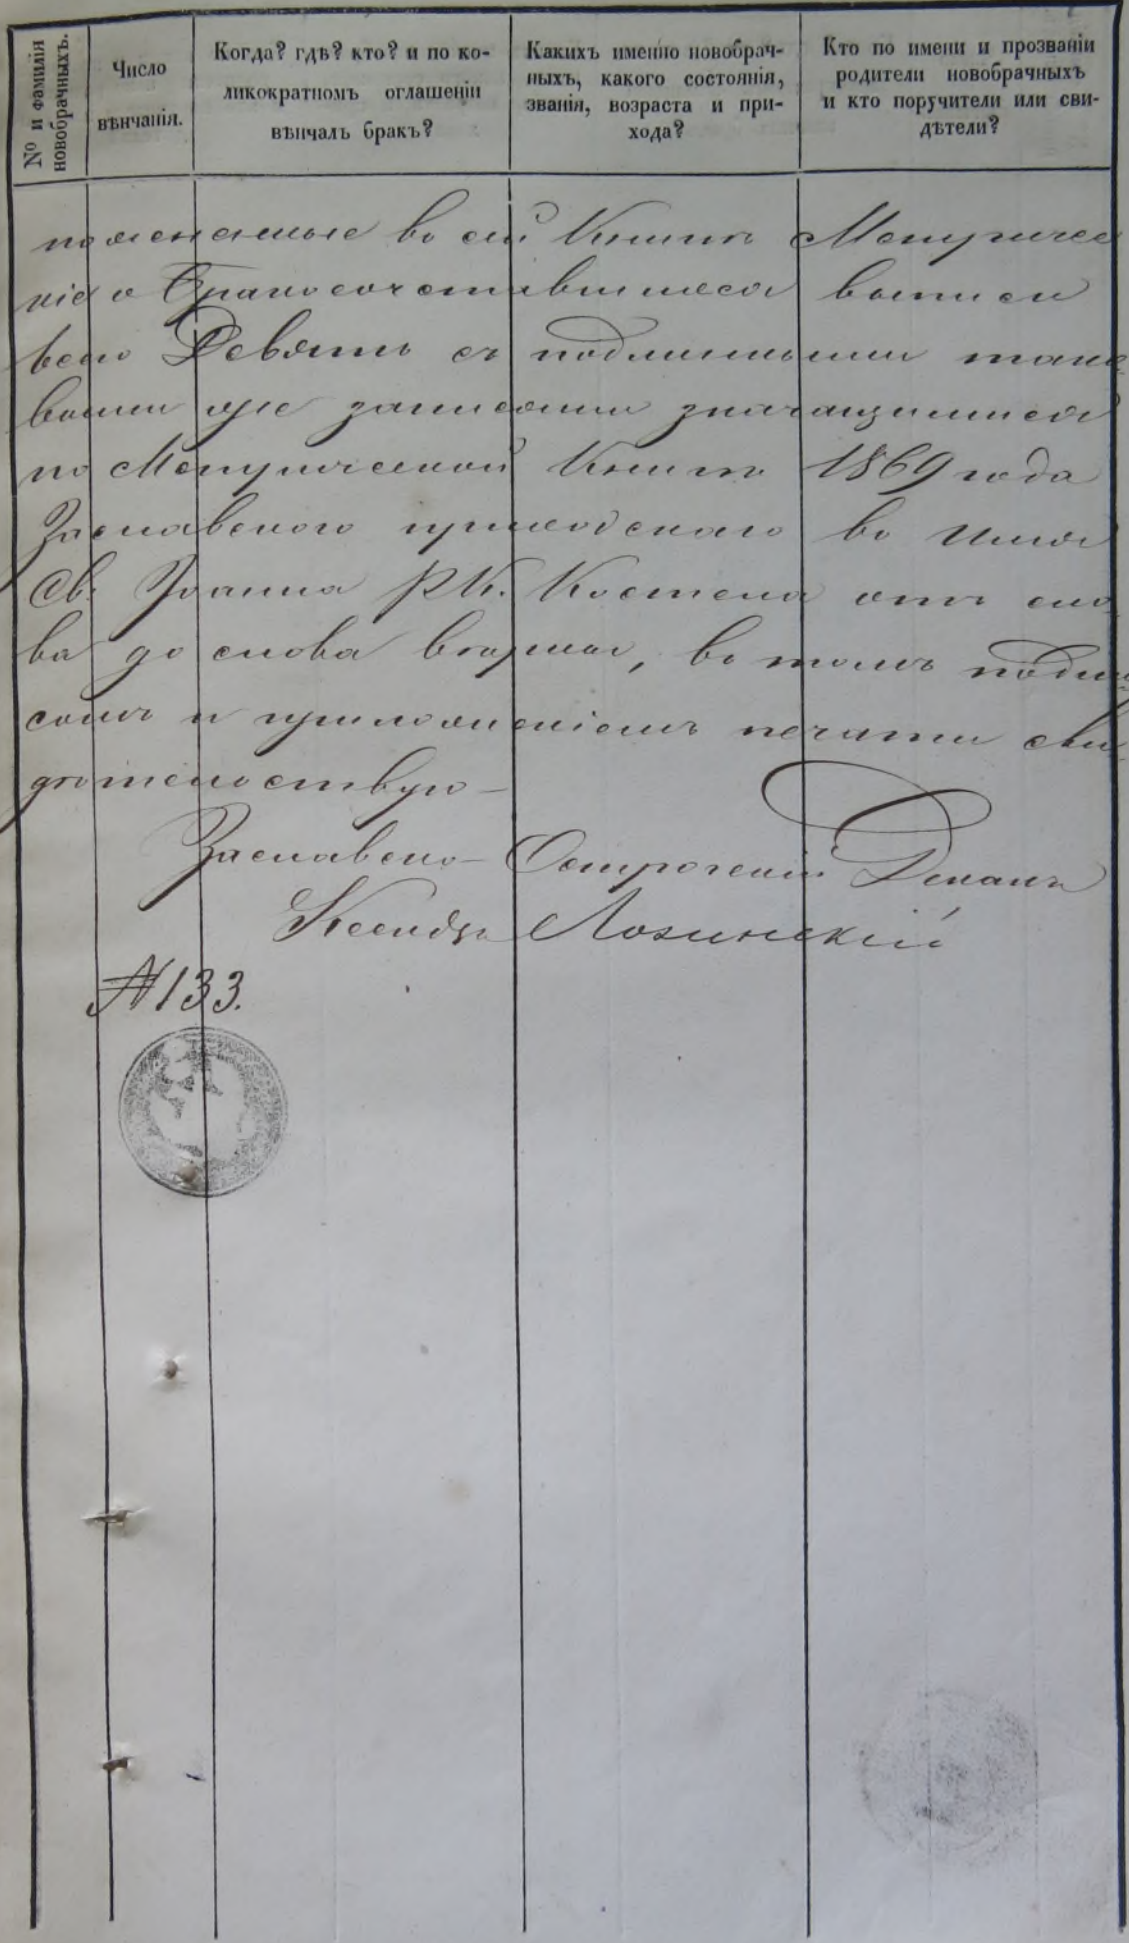 № и фамилія
новобрачныхъ.
Число
вѣнчанія.
Когда? гдѣ? кто? и по ко-
ликократномъ оглашеніи
вѣнчалъ бракъ?
Какихъ именно новобрач-
ныхъ, какого состоянія,
званія, возраста и при-
хода?
Кто по имени и прозваніи
родители новобрачныхъ
и кто поручители или сви-
дѣтели?
въ сей Книгѣ Метричес
кіе о бракосочетавшихся выписи
всего Девять съ подлинными тако
выми же записями значащимися
по Метрической Книгѣ 1869 года
Заславского приходскаго во имя
Св. Іоанна Р.К. Костела отъ сло
ва до слова вѣрны, въ томъ подпи
сомъ и приложеніемъ печати сви
дѣтельствую —
Заславско-Острогскій Деканъ
Ксендзъ Лозинскій
№ 133.